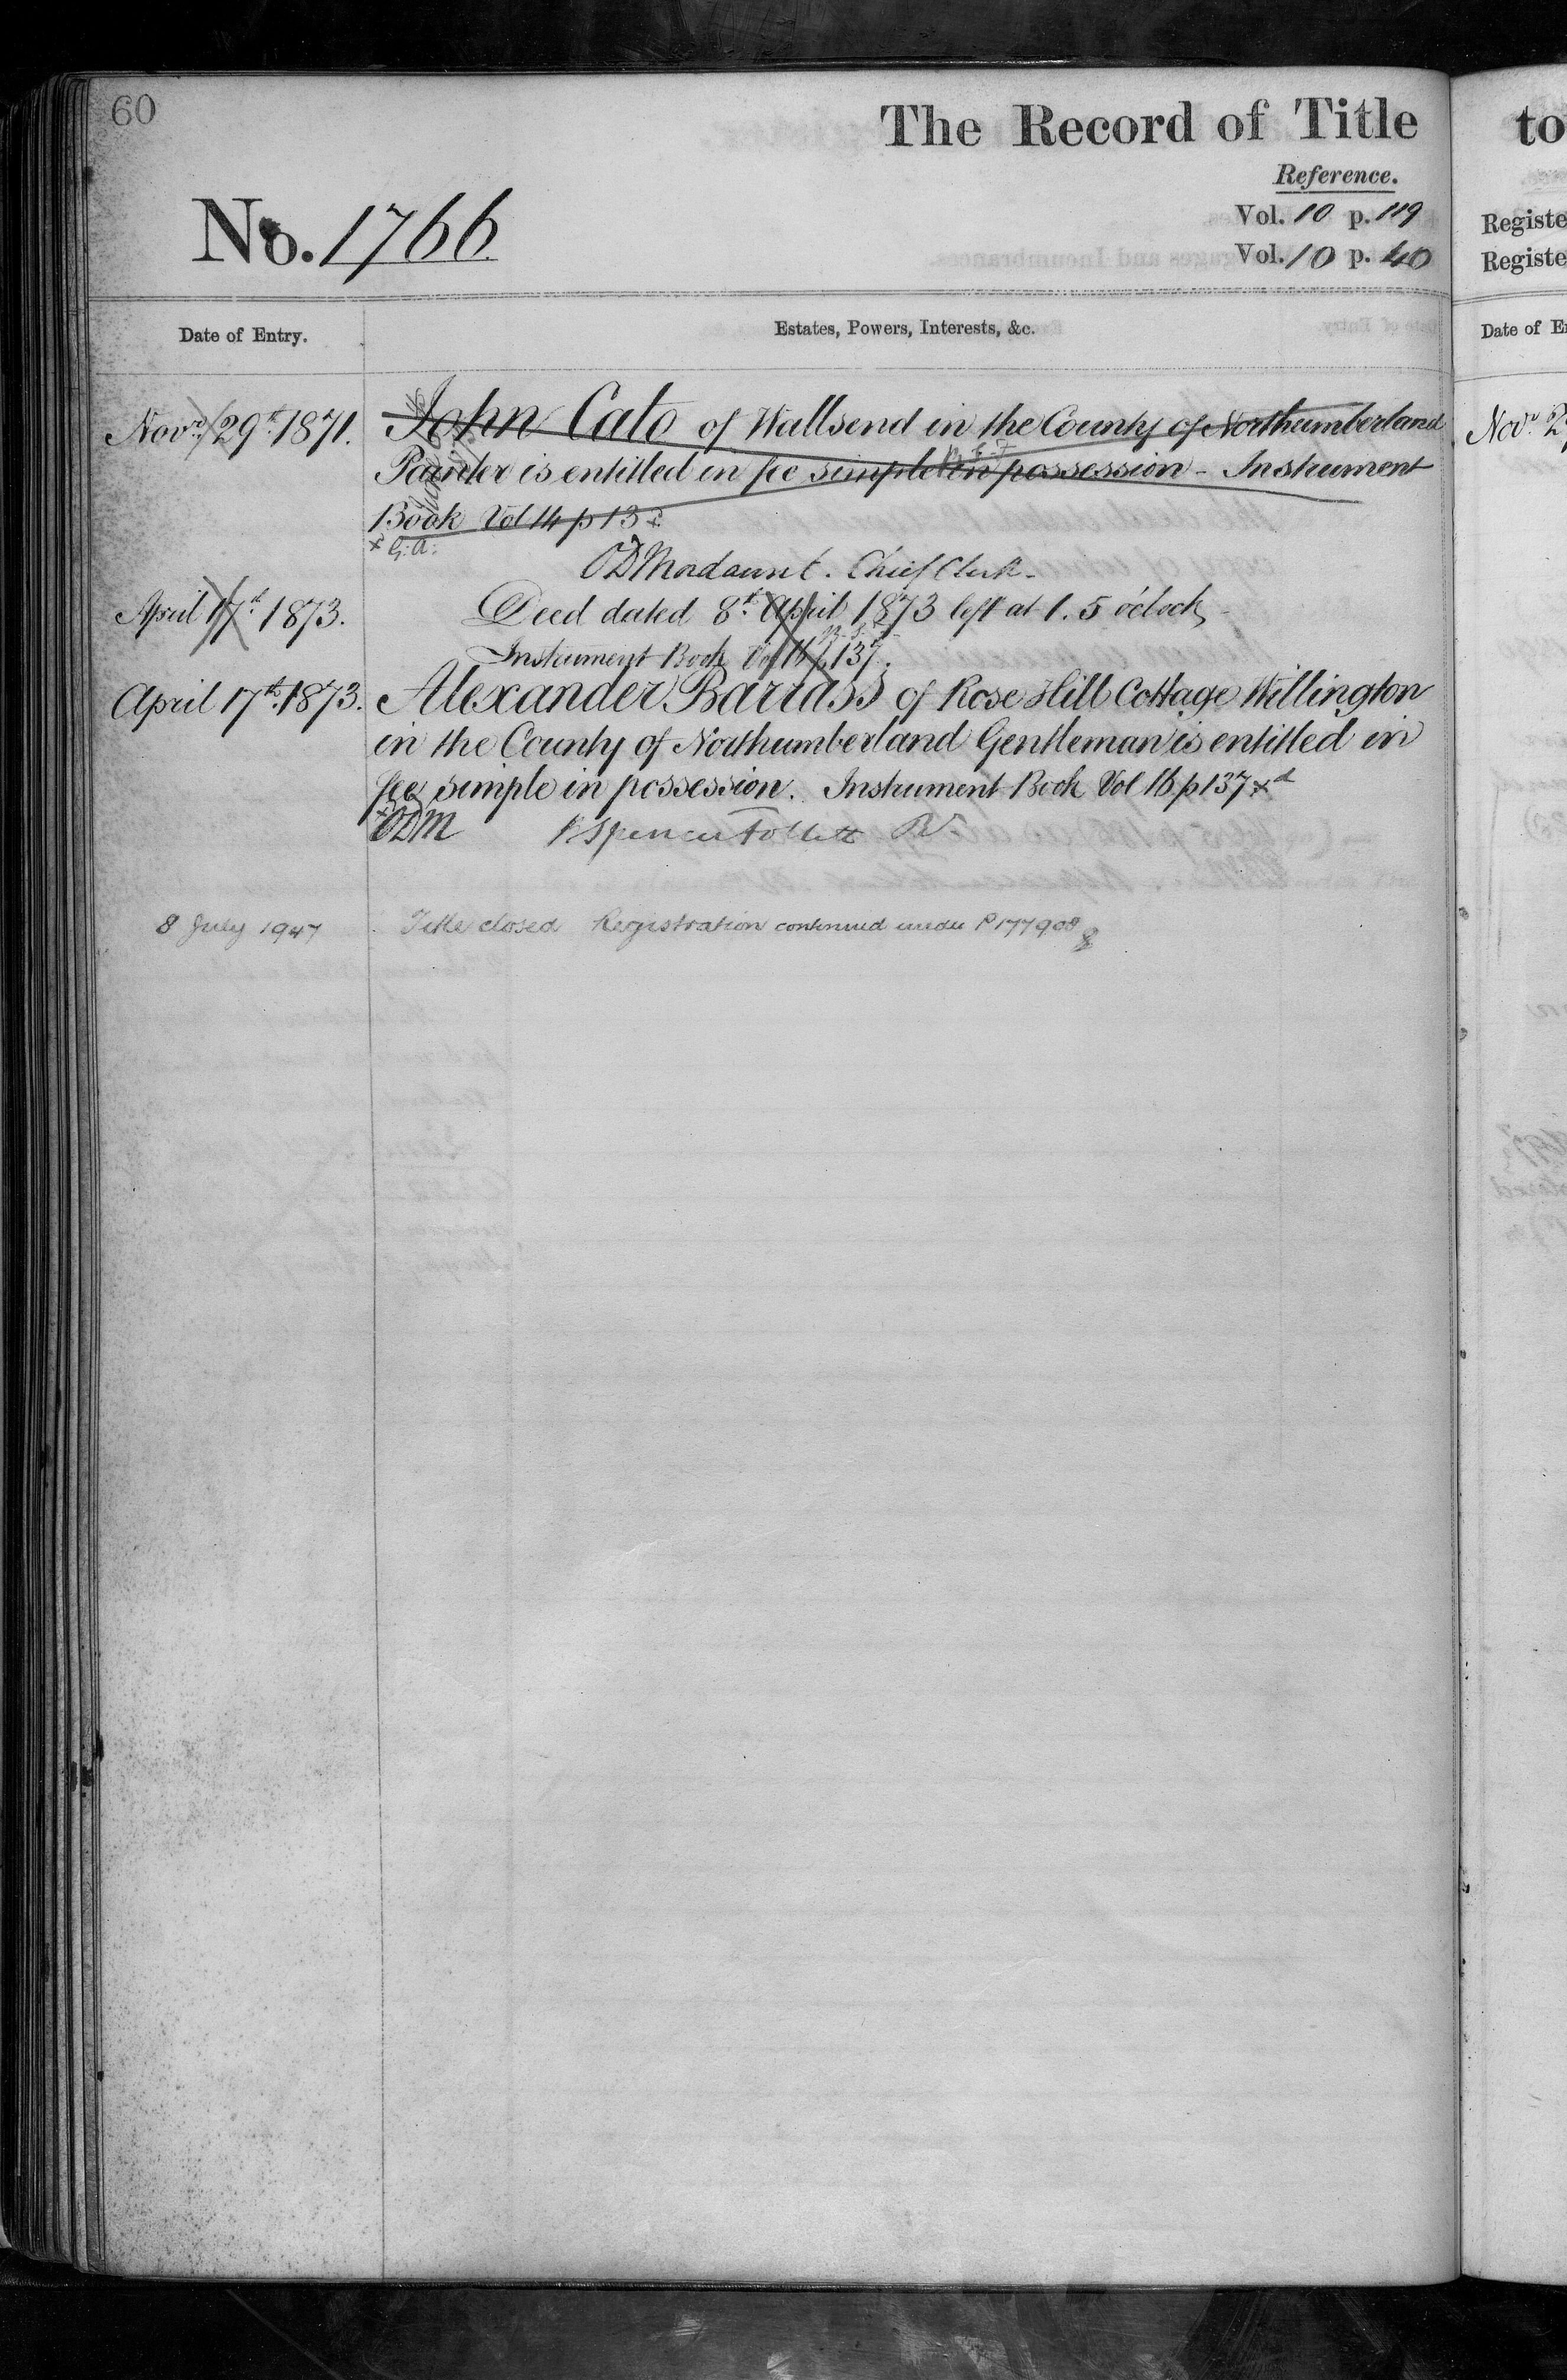 60
The Record of Title
Reference.
No. 1766
Vol. 10 p. 119
Vol. 10 p. 40
Date of Entry.
Estates, Powers, Interests, &c.
Novr. 29th 1871.
John Cato of Wallsend in the County of Northumberland
Painter is entitled in fee simple in possession - Instrument
Book Vol 14 p 13 x
x G. A.
ODMordaunt. Chief Clerk.
April 17th 1873.
Deed dated 8th April 1873 left at 1.5 o'clock
Instrument Book Vol 16 p 137.
April 17th 1873.
Alexander Barrass of Rose Hill Cottage Willington
in the County of Northumberland Gentleman is entitled in
fee simple in possession. Instrument Book Vol 16 p 137 x
x ODM
R Spencer Follett
8 July 1947
Title closed Registration continued under P177908
to
Registe
Registe
Date of E
Novr. 2